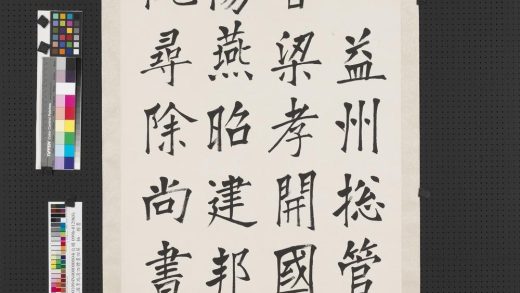 益州揔管
昔梁孝開國
陽燕昭建邦
尋除尚書